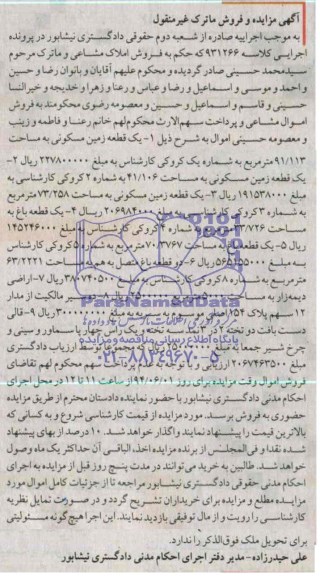 آگهی مزایده و فروش ماترک غیرمنقول
به موجب اجراییه صادره از شعبه دوم حقوقی دادگستری نیشابور در پرونده
اجرایی کلاسه ۹۳۱۲۶۶ که حکم به فروش املاک مشاعی و ماترک مرحوم
سیدمحمد حسینی صادر گردیده و محکوم علیهم آقایان و بانوان رضا و حسین
و احمد و موسی و اسماعیل و رضا و عباس و رعنا و زهرا و خدیجه و خیرالنسا
حسینی و قاسم و اسماعیل و حسین و معصومه رضوی محکومند به فروش
اموال مشاعی و پرداخت سهم‌الارث محکوم‌لهم خانم رعنا و فاطمه و زینب و
و معصومه حسینی اموال به شرح ذیل ۱- یک قطعه زمین مسکونی به مساحت
۹۱/۱۱۳ مترمربع به شماره یک کروکی کارشناس به مبلغ ۲۲۷۸۰۰۰۰۰ ریال ۲-
یک قطعه زمین مسکونی به مساحت ۴۱/۱۰۶ به شماره ۲ کروکی کارشناسی به
مبلغ ۱۹۱۵۳۸۰۰۰ ریال ۳- یک قطعه زمین مسکونی به مساحت ۷۳/۲۵۸ مترمربع
به شماره ۳ کروکی کارشناس به مبلغ ۲۰۶۹۸۴۰۰۰ ریال ۴- یک قطعه باغ به
مساحت ۳/۷۲۶ مترمربع به شماره ۴ کروکی کارشناس به مبلغ ۱۴۵۲۴۶۰۰۰
ریال ۵- یک قطعه باغ به مساحت ۷۰/۳۷۶۷ مترمربع به شماره ۵ کروکی کارشناس
به مبلغ ۵۶۵۱۵۵۰۰۰ ریال ۶- دو قطعه باغ متصل به هم به مساحت ۶۳/۲۲۲۱
مترمربع به شماره ۸ کروکی کارشناس به مبلغ ۳۸۰۷۴۰۵۰۰ ریال ۷- اراضی
دیمه‌زار به مساحت مالکیت از مدار
۱۲ سهم پلاک ۱۵۴ اصلی به مبلغ ۳۰۰۰۰۰۰۰۰ ریال ۹- قالی
دست بافت دو تخته ۲ در ۳ یک سه تخته و یک راس چهارپا و سماور و سینی و
چرخ شمس جمعا به مبلغ ۲۵۰۰۰۰۰۰ ریال که مجموعا توسط ارزیاب دادگستری
۲۰۶۷۴۶۳۵۰۰ ارزیابی و با توجه به عدم پرداخت سهم محکوم لهم تقاضای
فروش اموال وقت مزایده برای روز ۹۴/۰۶/۰۱ از ساعت ۱۱ تا ۱۲ در محل اجرای
احکام مدنی دادگستری نیشابور با حضور نماینده دادستان محترم از طریق مزایده
حضوری به فروش برسد. مورد مزایده از قیمت کارشناسی شروع و به کسانی که
بالاترین قیمت را پیشنهاد نمایند واگذار خواهد شد. ۱۰ درصد از بهای پیشنهاد
شده نقدا و فی‌المجلس از برنده مزایده اخذ، الباقی آن حداکثر یک ماه وصول
خواهد شد. طالبین به خرید می‌توانند در مدت پنج روز قبل از مزایده به اجرای
احکام مدنی حقوقی دادگستری نیشابور مراجعه تا از جزئیات کامل اموال مورد
مزایده مطلع و مزایده برای خریداران تشریح گردد و در صورت تمایل نظریه
کارشناسی را رویت و از مال توقیفی بازدید نمایند. این اجرا هیچ‌گونه مسئولیتی
برای تحویل ملک فوق‌الذکر را ندارد.
علی حیدرزاده- مدیر دفتر اجرای احکام مدنی دادگستری نیشابور
ParsNamadData
پایگاه اطلاع رسانی مناقصه و مزایده
۰۲۱-۸۸۳۴۹۶۷۰-۵